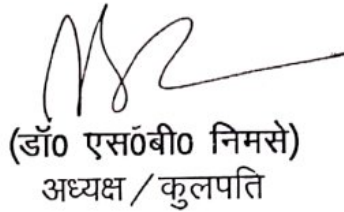 (डॉ0 एस0बी0 निमसे)
अध्यक्ष / कुलपति